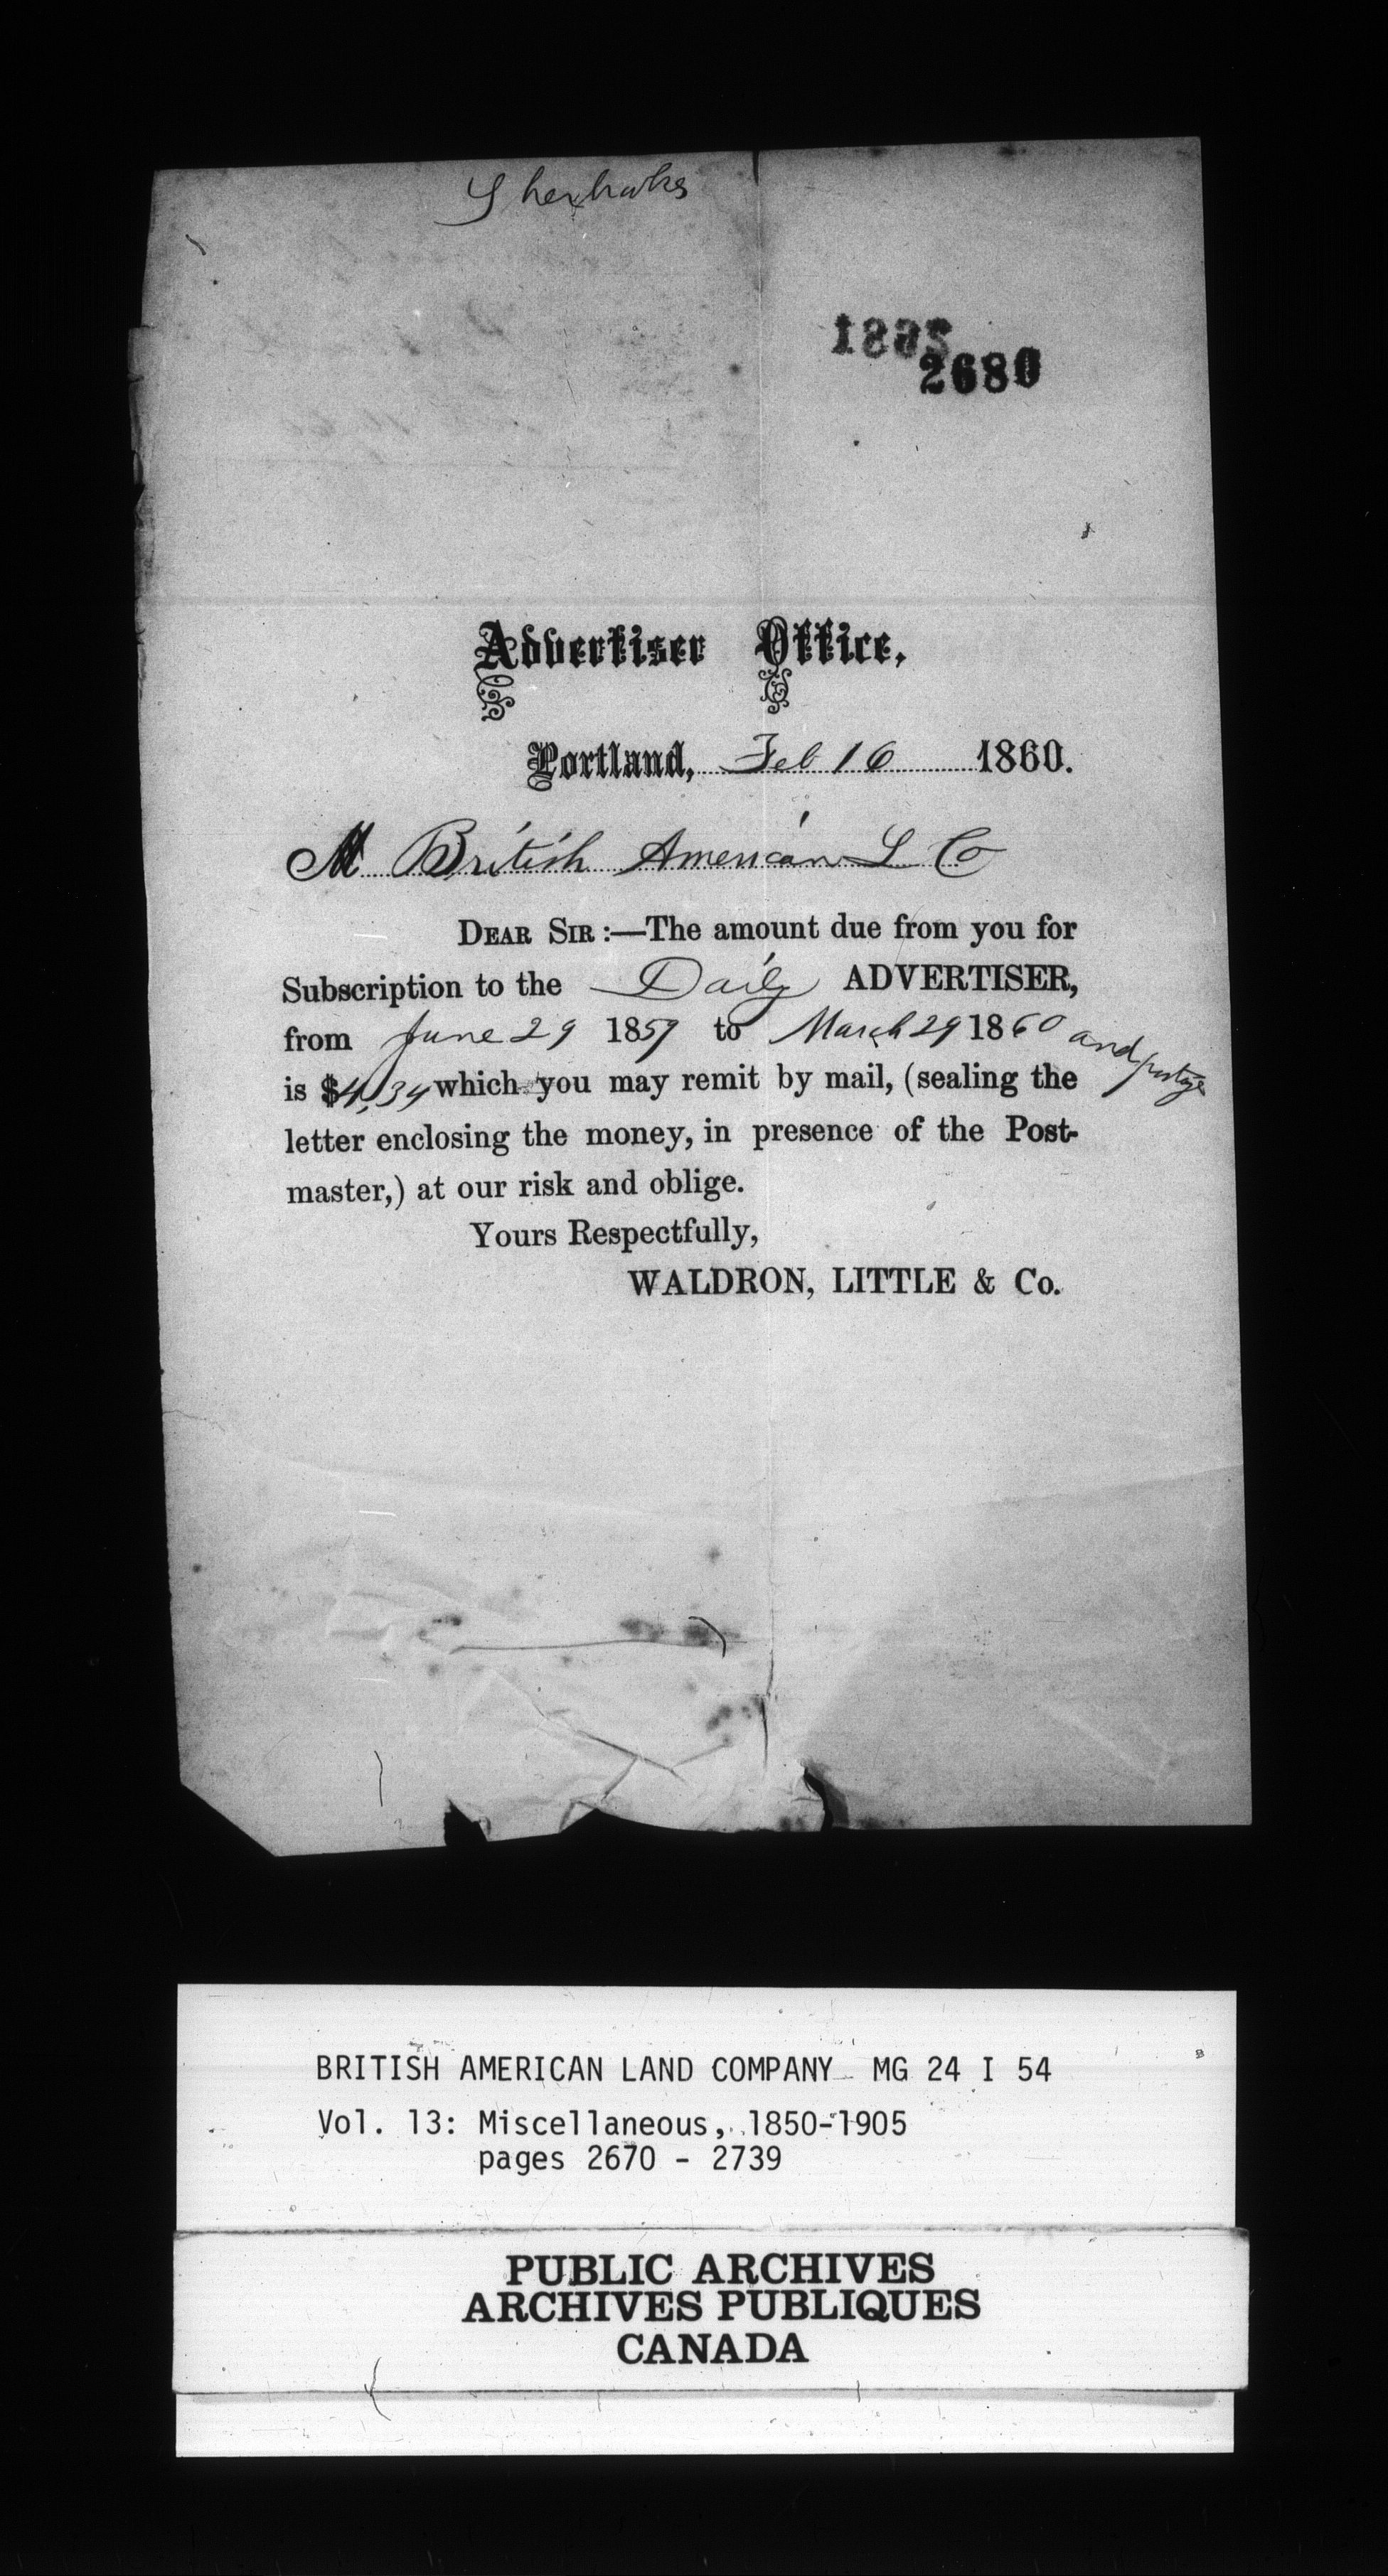 Sherbrooke
2680
Advertiser Office,
Portland, Feb 16 1860.
M British American L Co
DEAR SIR :—The amount due from you for
Subscription to the Daily ADVERTISER,
from June 29 1859 to March 29 1860 and postage
is $4,34 which you may remit by mail, (sealing the
letter enclosing the money, in presence of the Post-
master,) at our risk and oblige.
Yours Respectfully,
WALDRON, LITTLE & Co.
BRITISH AMERICAN LAND COMPANY MG 24 I 54
Vol. 13: Miscellaneous, 1850-1905
pages 2670 - 2739
PUBLIC ARCHIVES
ARCHIVES PUBLIQUES
CANADA